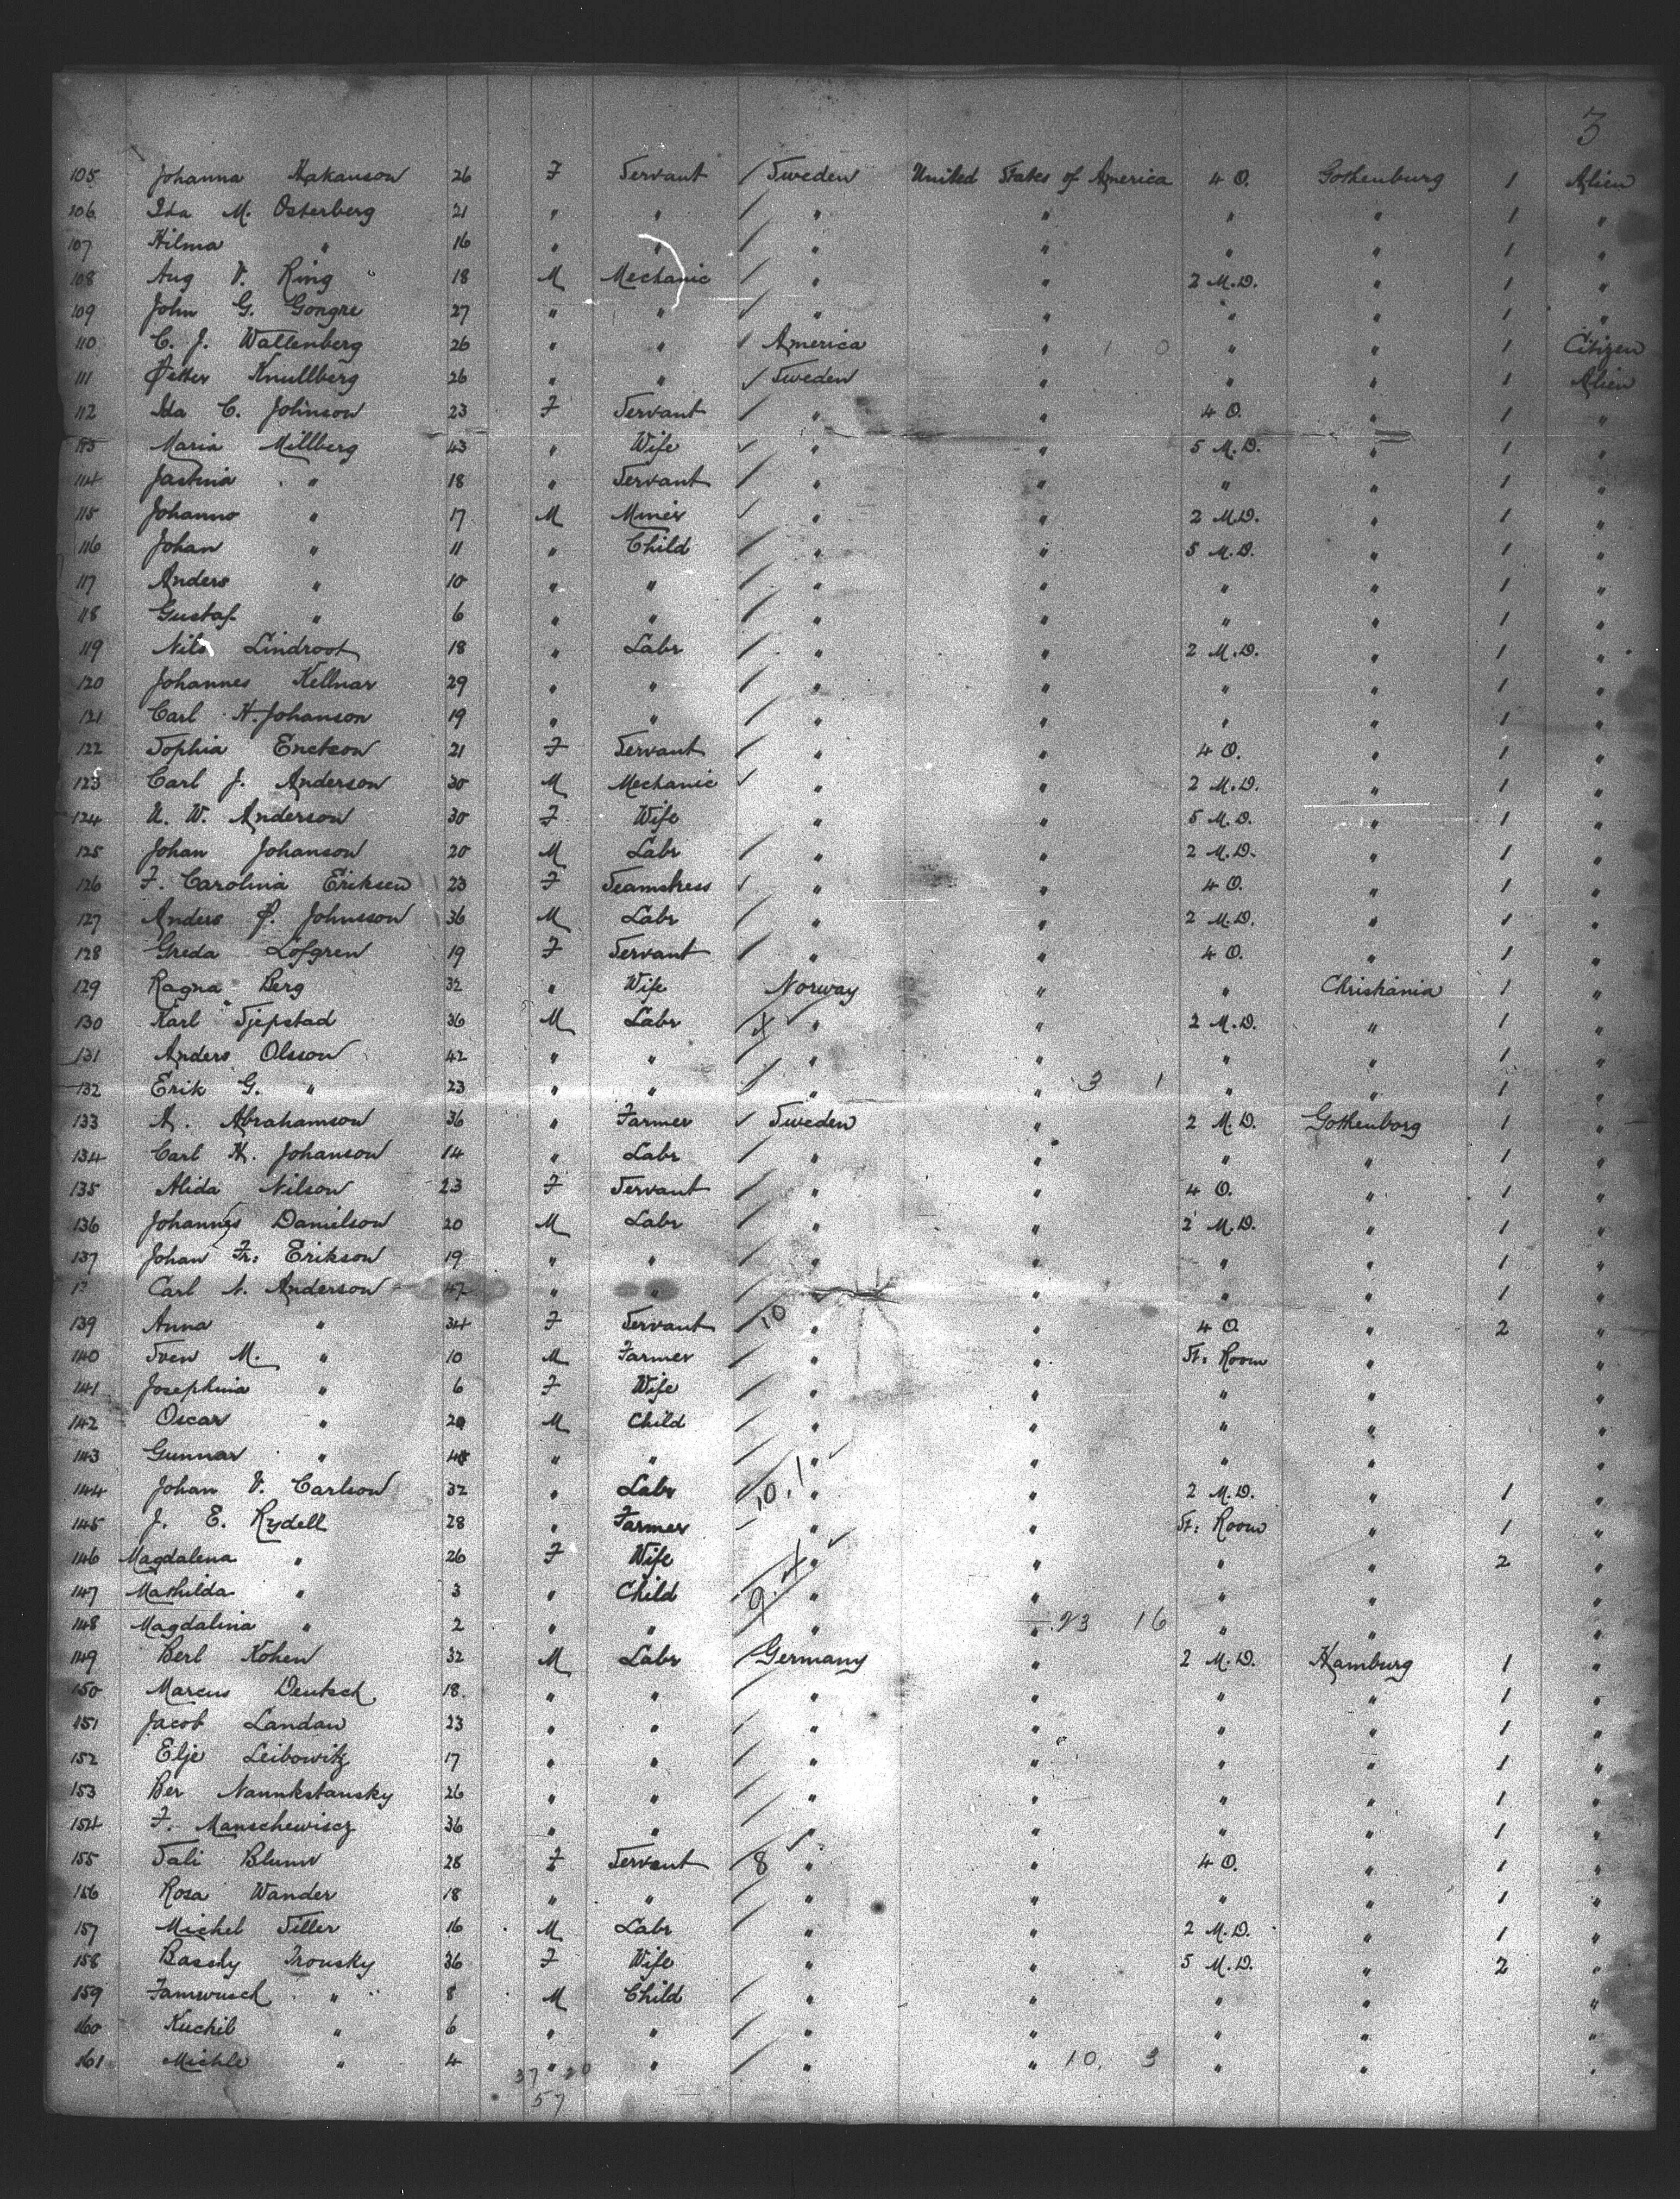 3
105 Johanna Hakanson 26 F Servant / Sweden United States of America 4 O. Gothenburg 1 Alien
106 Ida M. Osterberg 21 " " / " " " " 1 "
107 Hilma " 16 " " / " " " " 1 "
108 Aug V. Ring 18 M Mechanic / " " 2 M.D. " 1 "
109 John G. Gongre 27 " " / " " " " 1 "
110 C. J. Wallenberg 26 " " / America " 1 0 " " 1 Citizen
111 Petter Knullberg 26 " " ✓ Sweden " " " 1 Alien
112 Ida C. Johnson 23 F Servant / " " 4 O. " 1 "
113 Maria Millberg 43 " Wife ✓ " " 5 M.D. " 1 "
114 Justina " 18 " Servant / " " " " 1 "
115 Johanno " 17 M Miner ✓ " " 2 M.D. " 1 "
116 Johan " 11 " Child / " " 5 M.D. " 1 "
117 Anders " 10 " " / " " " " 1 "
118 Gustaf " 6 " " / " " " " 1 "
119 Nils Lindroot 18 " Labr / " " 2 M.D. " 1 "
120 Johannes Kellnar 29 " " / " " " " 1 "
121 Carl H. Johanson 19 " " / " " " " 1 "
122 Sophia Erickson 21 F Servant / " " 4 O. " 1 "
123 Carl J. Anderson 30 M Mechanic ✓ " " 2 M.D. " 1 "
124 U. W. Anderson 30 F Wife " " 5 M.D. " 1 "
125 Johan Johanson 20 M Labr / " " 2 M.D. " 1 "
126 F. Carolina Eriksen 23 F Seamstress ✓ " " 4 O. " 1 "
127 Anders P. Johnsson 36 M Labr / " " 2 M.D. " 1 "
128 Greda Lofgren 19 F Servant / " " 4 O. " 1 "
129 Ragna Berg 32 " Wife Norway " " Christiania 1 "
130 Karl Sjepstad 36 M Labr X " " 2 M.D. " 1 "
131 Anders Olsson 42 " " / " " " " 1 "
132 Erik G. " 23 " " / " " 3 1 " " 1 "
133 A. Abrahamson 36 " Farmer ✓ Sweden " 2 M.D. Gothenborg 1 "
134 Carl H. Johanson 14 " Labr / " " " " 1 "
135 Alida Nilson 23 F Servant / " " 4 O. " 1 "
136 Johannes Danielson 20 M Labr / " " 2 M.D. " 1 "
137 Johan Fr: Erikson 19 " " / " " " " 1 "
Carl N. Anderson 47 " " / " " " " 1 "
139 Anna " 34 F Servant / 10 " " 4 O. " 2 "
140 Sven M. " 10 M Farmer / " " St: Room " "
141 Josephina " 6 F Wife / " " " " "
142 Oscar " M Child / " " " " "
143 Gunnar " " " / " " " " "
144 Johan V. Carlson 32 " Labr / 10.1 " " 2 M.D. " 1 "
145 J. E. Rydell 28 " Farmer / " " St: Room " 1 "
146 Magdalena " 26 F Wife / " " " " 2 "
147 Mathilda " 3 " Child / 9. X " " " " "
148 Magdalina " 2 " " " " 23 16 " " "
149 Berl Kohen 32 M Labr / Germany " 2 M.D. Hamburg 1 "
150 Marcus Deutsch 18. " " / " " " " 1 "
151 Jacob Landau 23 " " / " " " " 1 "
152 Elje Leibowitz 17 " " / " " " " 1 "
153 Ber Nannkstansky 26 " " / " " " " 1 "
154 F. Manschewiscz 36 " " / " " " " 1 "
155 Sali Blumr 28 F Servant / 8 " " 4 O. " 1 "
156 Rosa Wander 18 " " / " " " " 1 "
157 Michel Siller 16 M Labr / " " 2 M.D. " 1 "
158 Bassly Pronsky 36 F Wife " " 5 M.D. " 2 "
159 Jamwusch " 8 M Child / " " " " "
160 Kuchil " 6 " " / " " " " "
161 Michle " 4 " " / " " 10. 3 " " "
37 20
57